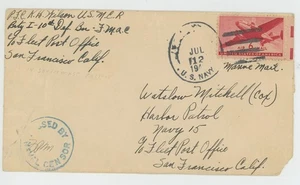 Pfc. R. H. Nelson U.S.M.C.R.
Bty I-10th Def. Bn. F.M.A.C.
℅ Fleet Post Office
San Francisco Calif.
JUL
12
U.S. NAVY
Marine Mail
Mitchell (Cox)
Harbor Patrol
Navy 15
℅ Fleet Post Office
San Francisco Calif.
SED BY
CENSOR